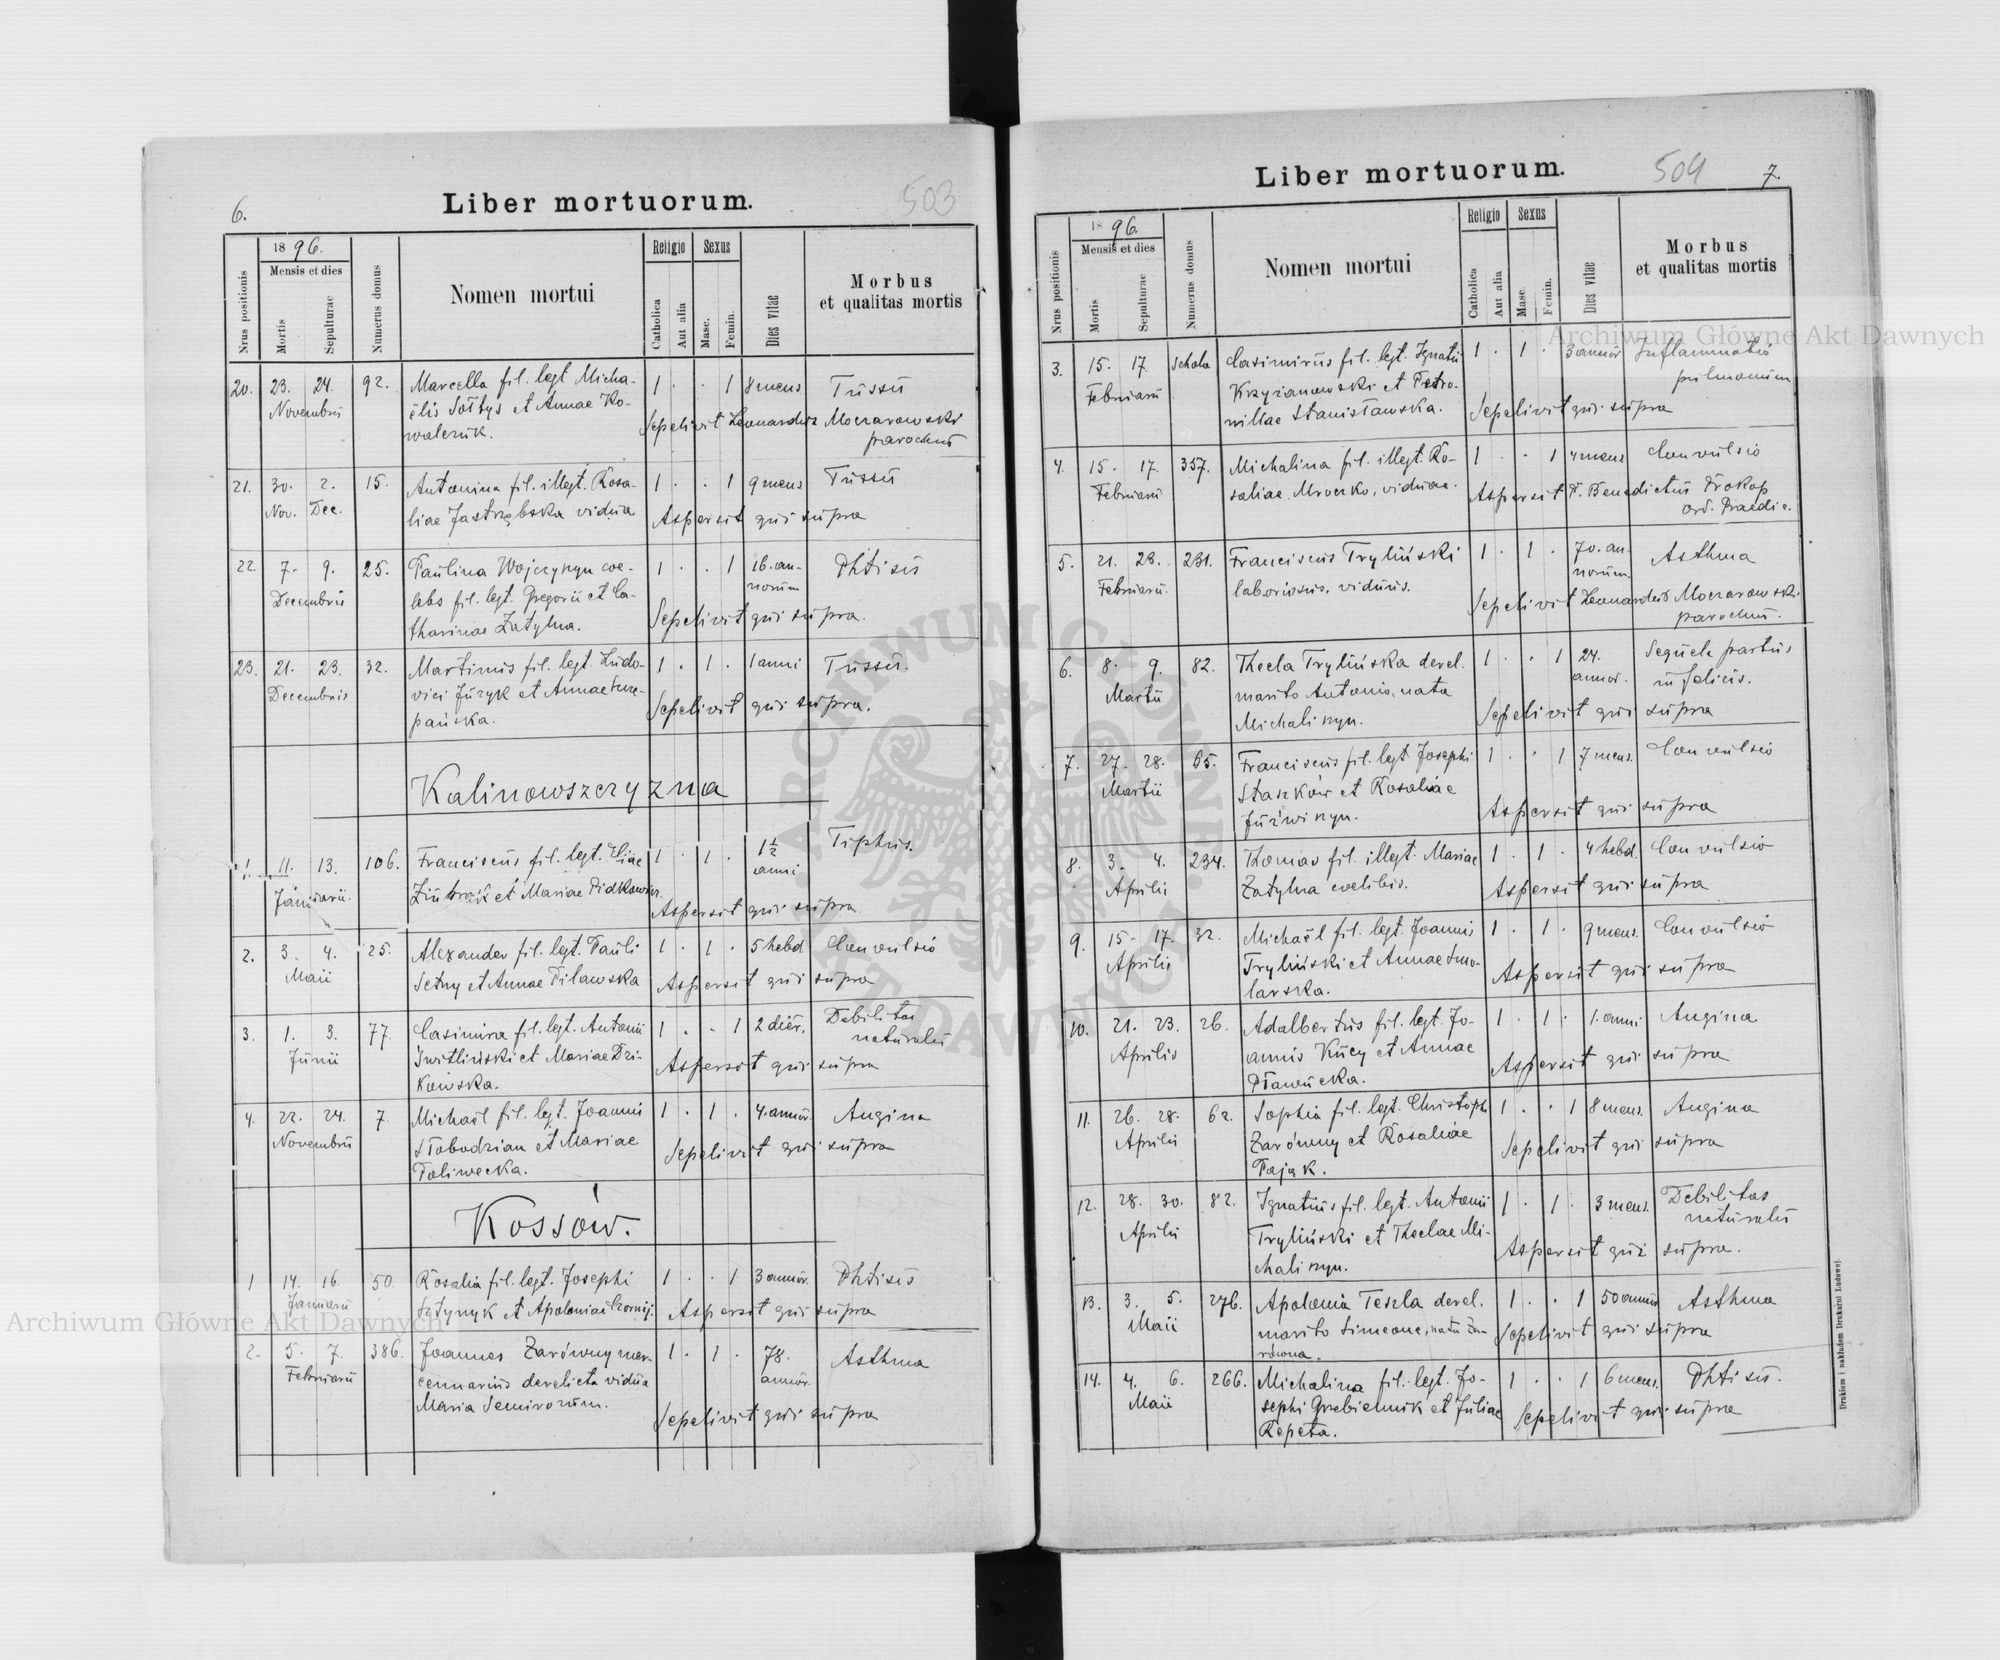 6.
Liber mortuorum.
503
Nrus positionis
1896.
Mensis et dies
Mortis
Sepulturae
Numerus domus
Nomen mortui
Religio
Catholica
Aut alia
Sexus
Masc.
Femin.
Dies vitae
Morbus
et qualitas mortis
20. 23. 24. 92. Marcella fil. legt Micha- 1 . . 1 8 mens Tussis
Novembris ëlis Sołtys et Annae Ko- Sepelivit Leonardus Moczarowski
walczuk. parochus
21. 30. 2. 15. Antonina fil. illegt. Rosa- 1 . . 1 9 mens Tussis
Nov. Dec. liae Jastrzębska vidua Aspersit qui supra
22. 7. 9. 25. Paulina Wojczyszyn coe- 1 . . 1 16. an- Phtisis
Decembris lebs fil. legt. Gregorii et Ca- norum
tharinae Zatylna. Sepelivit qui supra.
23. 21. 23. 32. Martinus fil. legt. Ludo- 1 . 1 . 1 anni Tussis.
Decembris vici Juzyk et Annae Szcze- Sepelivit qui supra.
pańska.
Kalinowszczyzna
1. 11. 13. 106. Franciscus fil. legt. Eliae 1 . 1 . 1½ Tiphus.
Januarii. et Mariae anni
Aspersit qui supra.
2. 3. 4. 25. Alexander fil. legt. Pauli 1 . 1 . 5 hebd Convulsio
Maii Setny et Annae Pilawska Aspersit qui supra
3. 1. 3. 77. Casimira fil. legt. Antonii 1 . . 1 2 dier. Debilitas
Junii Switliński et Mariae Dzi- naturalis
kowska. Aspersit qui supra
4. 22. 24. 7. Michaël fil. legt. Joannis 1 . 1 . 4. annor. Angina
Novembris Słobodzian et Mariae Sepelivit qui supra
Paliwecka.
Kossów.
1 14. 16. 50. Rosalia fil. legt. Josephi 1 . . 1 3 annor. Phtisis
Januarii et Apoloniae Aspersit qui supra
2. 5. 7. 386. Joannes Zarówny mer- 1 . 1 . 78. Asthma
Februarii cennarius derelicta vidua annor.
Maria Semirozum. Sepelivit qui supra
Liber mortuorum.
504
7.
Nrus positionis
1896.
Mensis et dies
Mortis
Sepulturae
Numerus domus
Nomen mortui
Religio
Catholica
Aut alia
Sexus
Masc.
Femin.
Dies vitae
Morbus
et qualitas mortis
3. 15. 17. Schola Casimirus fil. legt. Ignatii 1 . 1 . 3 annor Inflammatio
Februarii Krzyżanowski et Petro- pulmonum
nillae Stanisławska. Sepelivit qui supra
4. 15. 17. 357. Michalina fil. illegt. Ro- 1 . . 1 4 mens Convulsio
Februarii saliae Mroczko, viduae. Aspersit P. Benedictus Prokop
ord. Praedic.
5. 21. 23. 231. Franciscus Tryliński 1 . 1 . 70. an- Asthma
Februarii. laboriosus, viduus. norum.
Sepelivit Leonardus Moczarowski
parochus.
6. 8. 9. 82. Thecla Trylińska derel. 1 . . 1 24. Sequela partus
Martii marito Antonio, nata annor. infelicis.
Michaliszyn. Sepelivit qui supra
7. 27. 28. 65. Franciscus fil. legt. Josephi 1 . . 1 7 mens. Convulsio
Martii Staszków et Rosaliae
Juźwiszyn. Aspersit qui supra
8. 3. 4. 234. Thomas fil. illegt. Mariae 1 . 1 . 4 hebd. Convulsio
Aprilis Zatylna coelibis. Aspersit qui supra
9. 15. 17. 32. Michaël fil. legt. Joannis 1 . 1 . 9 mens. Convulsio
Aprilis Tryliński et Annae Smo- Aspersit qui supra
larska.
10. 21. 23. 26. Adalbertus fil. legt. Jo- 1 . 1 . 1. anni Angina
Aprilis annis Kucy et Annae
Pławucka. Aspersit qui supra
11. 26. 28. 62. Sophia fil. legt. Christophi 1 . . 1 8 mens. Angina
Aprilis Zarówny et Rosaliae Sepelivit qui supra
Pająk.
12. 28. 30. 82. Ignatius fil. legt. Antonii 1 . 1 . 3 mens. Debilitas
Aprilis Tryliński et Theclae Mi- naturalis
chaliszyn. Aspersit qui supra.
13. 3. 5. 276. Apolonia Teszla derel. 1 . . 1 50 annor Asthma
Maii marito Simeone, nata Za- Sepelivit qui supra
równa.
14. 4. 6. 266. Michalina fil. legt. Jo- 1 . . 1 6 mens. Phtisis.
Maii sephi Grebieniuk et Juliae Sepelivit qui supra
Repeta.
Drukiem i nakładem Drukarni Ludowej
Archiwum Główne Akt Dawnych
Archiwum Główne Akt Dawnych
ARCHIWUM GŁÓWNE AKT DAWNYCH